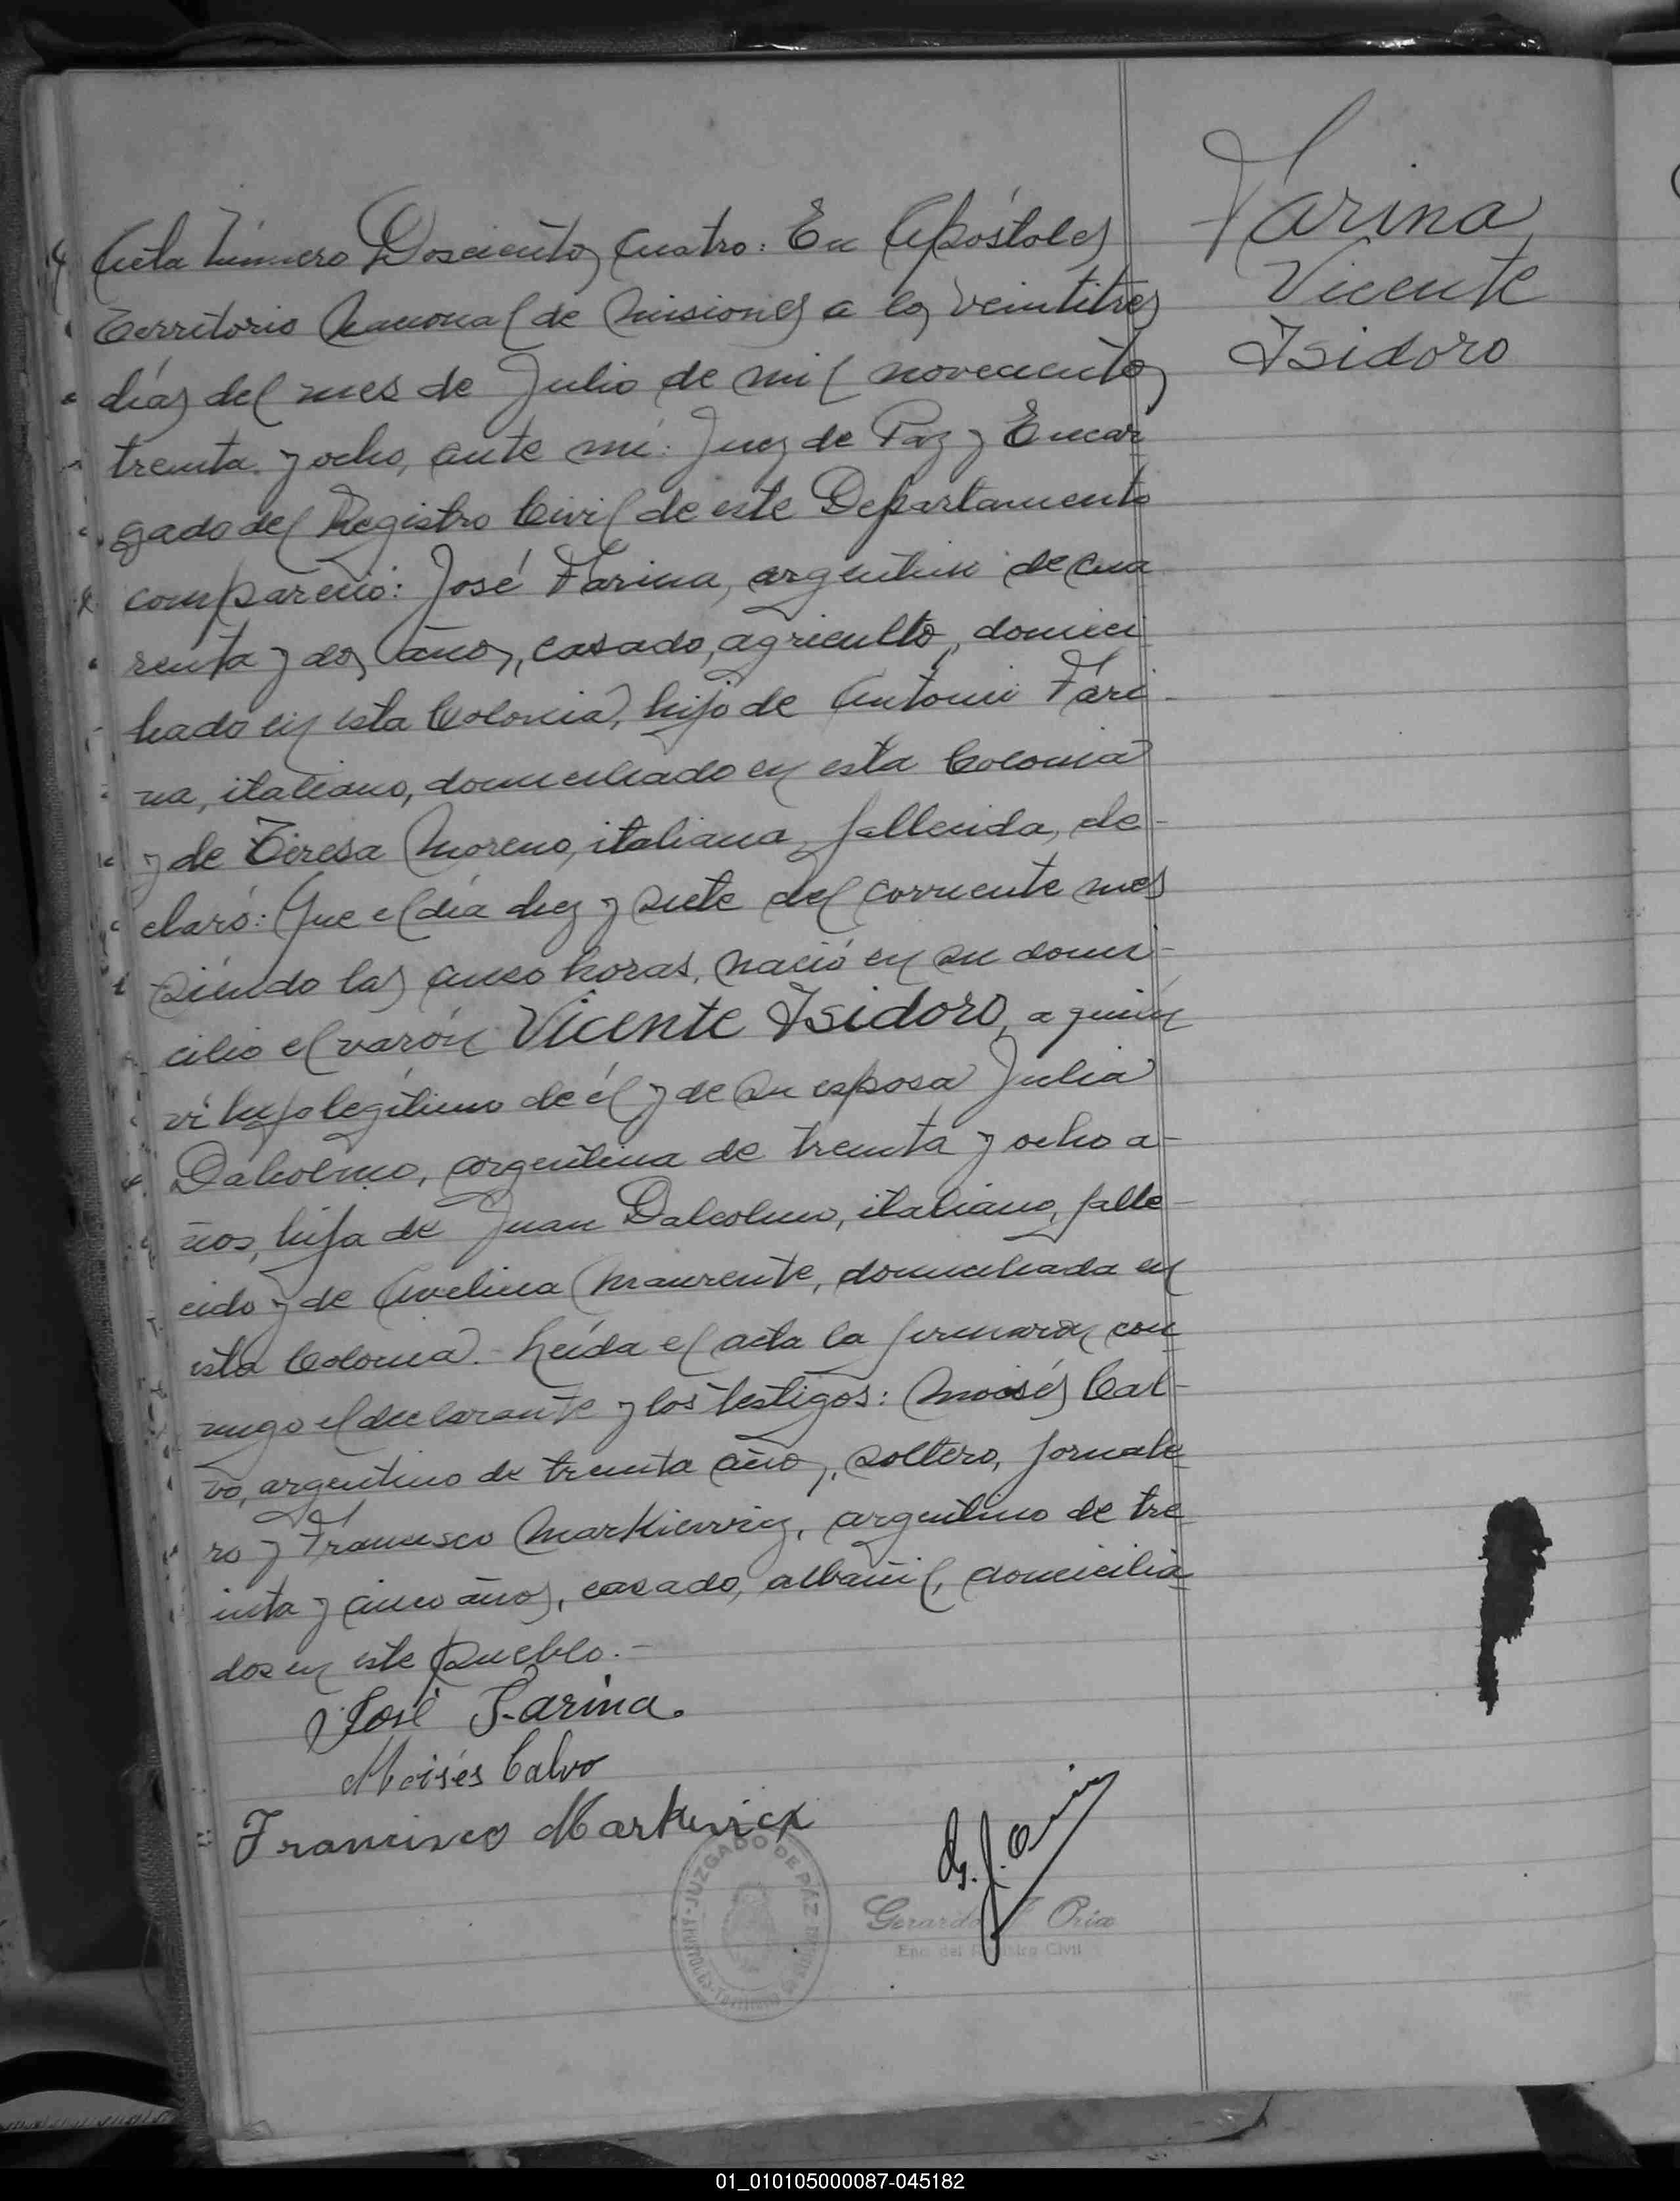 Farina
Vicente
Isidoro
Acta número Doscientos cuatro: En Apóstoles
Territorio Nacional de Misiones a los veintitres
días del mes de Julio de mil novecientos
treinta y ocho, ante mí: Juez de Paz y Encar
gado del Registro Civil de este Departamento
compareció: José Farina, argentino de cua
renta y dos años, casado, agricultor, domici
liado en esta Colonia, hijo de Antonio Fari
na, italiano, domiciliado en esta Colonia
y de Teresa Moreno, italiana, fallecida, de-
claró: Que el día diez y siete del corriente mes
siendo las cinco horas, nació en su domi-
cilio el varón Vicente Isidoro, a quien
ví hijo legítimo de él y de su esposa Julia
Dalcolmo, argentina de treinta y ocho a-
ños, hija de Juan Dalcolmo, italiano, falle-
cido y de Avelina Maurente, domiciliada en
esta Colonia.- Leída el acta la firmaron con
migo el declarante y los testigos: Moisés Cal-
vo, argentino de treinta años, soltero, jornale
ro y Francisco Markievicz, argentino de tre
inta y cinco años, casado, albañil, domicilia
dos en este pueblo.-
José Farina.
Moisés Calvo
Francisco Markievicz
JUZGADO DE PAZ
Gerardo J. Oria
Enc. del Registro Civil
01_010105000087-045182